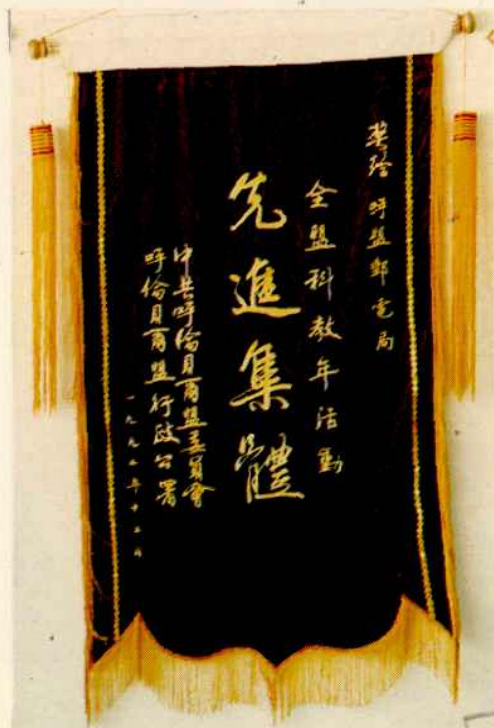 奖给 呼盟郵電局
全盟科教年活動
先進集體
中共呼倫貝爾盟委員會
呼倫貝爾盟行政公署